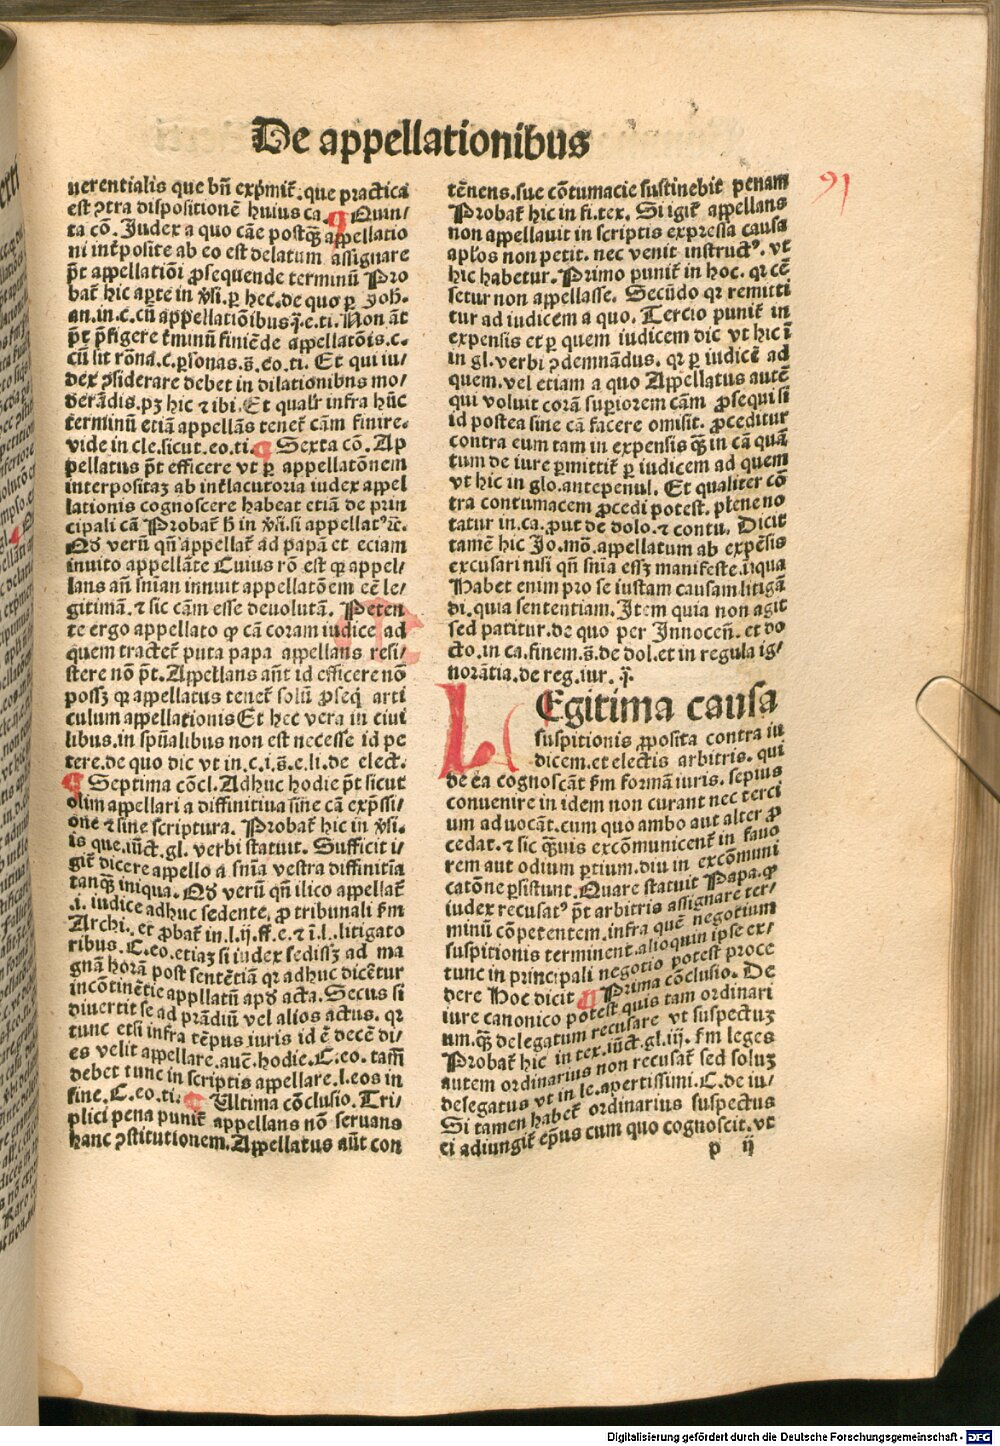 De appellationibus
91
uerentialis que bñ exp̄mit̄.que practica
est ꝯtra dispositionē huius ca. ¶ Quin/
ta cō. Judex a quo cāe postq̄ꝫ appellatio
ni int̄posite ab eo est delatum assignare
p̄t appellatiōi ꝓsequende terminū Pro
bat̄ hic aꝑte in v̄si.ꝑ hec.de quo ꝑ Joh̄.
an.in.c.cū appellatiōibus.q̄.e.ti. Non āt
p̄t p̄figere t̄minū finiēde appellatōis.c.
cū sit rōna.c.ꝑsonas.s̄.eo.ti. Et qui iu/
dex ꝯsiderare debet in dilationibns mo/
derādis.pꝫ hic ⁊ ibi.Et qualr̄ infra hūc
terminū etiā appellās tenet̄ cām finire.
vide in cle.sicut.eo.ti. ¶ Sexta cō. Ap
pellatus p̄t efficere vt ꝑ appellatōnem
interpositaꝫ ab int̄lacutoria iudex appel
lationis cognoscere habeat etiā de prin
cipali cā Probat̄ h̄ in v̄si.si appellatꝰ⁊c̄.
Qd̄ verū qñ appellat̄ ad papā et eciam
inuito appellāte Cuius rō est ꝙ appel/
lans añ snīan innuit appellatōem eē le/
gitimā.⁊ sic cām esse deuolutā. Peten
te ergo appellato ꝙ cā coram iudice ad
quem tractet̄ puta papa appellans resi/
stere nō p̄t. Appellans añt id efficere nō
possꝫ ꝙ appellatus tenet̄ solū ꝓseq̄ arti
culum appellationis Et hec vera in ciui
libus.in spūalibus non est necesse id pe
tere.de quo dic vt in.c.i.s̄.e.li.de elect.
¶ Septima cōcl. Adhuc hodie p̄t sicut
olim appellari a diffinitiua sine cā exp̄ssi/
one ⁊ sine scriptura. Probat̄ hic in v̄si.
is que.iūct.gl. verbi statuit. Sufficit i/
git̄ dicere appello a snīa vestra diffinitīa
tanq̄ꝫ iniqua. Qd̄ verū qñ ilico appellat̄
.i. iudice adhuc sedente, ꝓ tribunali s̄m
Archi. et ꝓbat̄ in.l.ij.ff.e.⁊ ī.l.litigato
ribus.C.eo.etiaꝫ si iudex sedissꝫ ad ma
gnā horā post sentētiā qꝛ adhuc dicētur
incōtinētie appllatū apd̄ acta. Secus si
diuertit se ad prādiū vel alios actus. qꝛ
tunc etsi infra tēpus iuris id ē decē di/
es velit appellare.auē.hodie.C.eo. tassī
debet tunc in scriptis appellare.l.eos in
fine.C.eo.ti. ¶ Ultima cōclusio. Tri/
plici pena punit̄ appellans nō seruans
hanc ꝯstitutionem. Appellatus aūt con
tēnens.sue cōtumacie sustinebit penam
Probat̄ hic in fi.tex. Si igit̄ appellans
non appellauit in scriptis expressa causa
aplōs non petit. nec venit instructꝰ. vt
hic habetur. Primo punit̄ in hoc. qꝛ cē
setur non appellasse. Secūdo qꝛ remitti
tur ad iudicem a quo. Tercio punit̄ in
expensis et ꝑ quem iudicem dic vt hic ī
in gl. verbi ꝯdemnādus. qꝛ ꝑ iudicē ad
quem.vel etiam a quo Appellatus autē
qui voluit corā suꝑiorem cām ꝓsequi si
id postea sine cā facere omisit. ꝓceditur
contra eum tam in expensis q̄ꝫ in cā quā
tum de iure ꝑmittit̄ ꝑ iudicem ad quem
vt hic in glo.antepenul. Et qualiter cō
tra contumacem ꝓcedi potest. plene no
tatur in.ca. ꝓut de dolo.⁊ contu. Dicit
tamē hic Jo.mō.appellatum ab expēsis
excusari nisi qñ snīa essꝫ manifeste.iīqua
Habet enim pro se iustam causam litigā
di. quia sententiam. Item quia non agit
sed patitur.de quo per Innocen̄. et do
cto.in ca.finem.s̄.de dol.et in regula ig/
norātia.de reg.iur. q̄.
LEgitima causa
suspitionis ꝓposita contra iu
dicem.et electis arbitris. qui
de ea cognoscāt s̄m formā iuris. sepius
conuenire in idem non curant nec terci
um aduocāt.cum quo ambo aut alter ꝓ
cedat.⁊ sic q̄uis excōmunicent̄ in fauo
rem aut odium ꝑtium.diu in excōmuni
catōne ꝑsistunt. Quare statuit Papa.ꝙ
iudex recusatꝰ p̄t arbitris assignare ter/
minū cōpetentem.infra quē negotium
suspitionis terminent.alioquin ipse ex/
tunc in principali negotio potest proce
dere Hoc dicit ¶ Prima cōclusio. De
iure canonico potest quis tam ordinari
um.q̄ꝫ delegatum recusare vt suspectuꝫ
Probat̄ hic in tex.iūct.gl.iij. s̄m leges
autem ordinarius non recusat̄ sed soluꝫ
delegatus vt in le.apertissimi.C.de iu/
Si tamen habet̄ ordinarius suspectus
ei adiungit̄ ep̄us cum quo cognoscit.vt
p ij
Digitalisierung gefördert durch die Deutsche Forschungsgemeinschaft - DFG